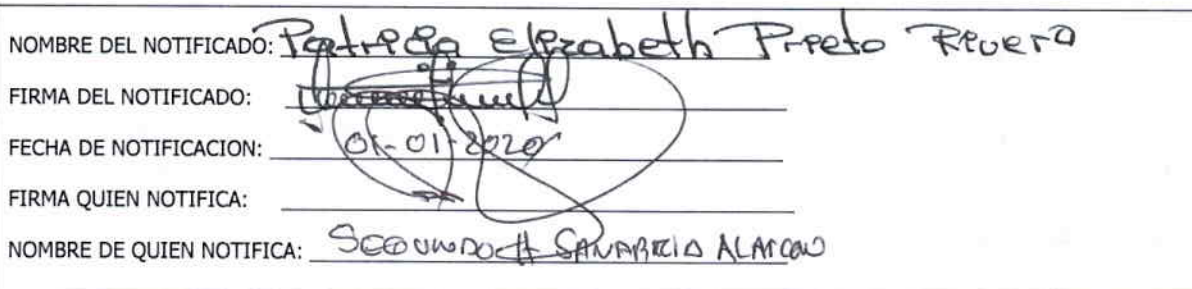 NOMBRE DEL NOTIFICADO: Patricia Elizabeth Prieto Rivera
FIRMA DEL NOTIFICADO:
FECHA DE NOTIFICACION: 01-01-2020
FIRMA QUIEN NOTIFICA:
NOMBRE DE QUIEN NOTIFICA: SEGUNDO H SANABRIA ALARCON